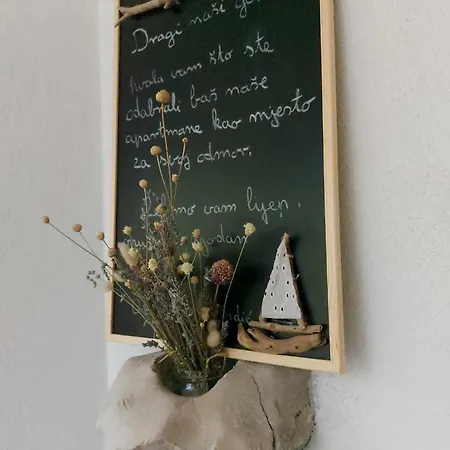 Dragi naši
hvala vam što ste
odabrali baš naše
apartmane kao mjesto
za svoj odmor.
vam lijep